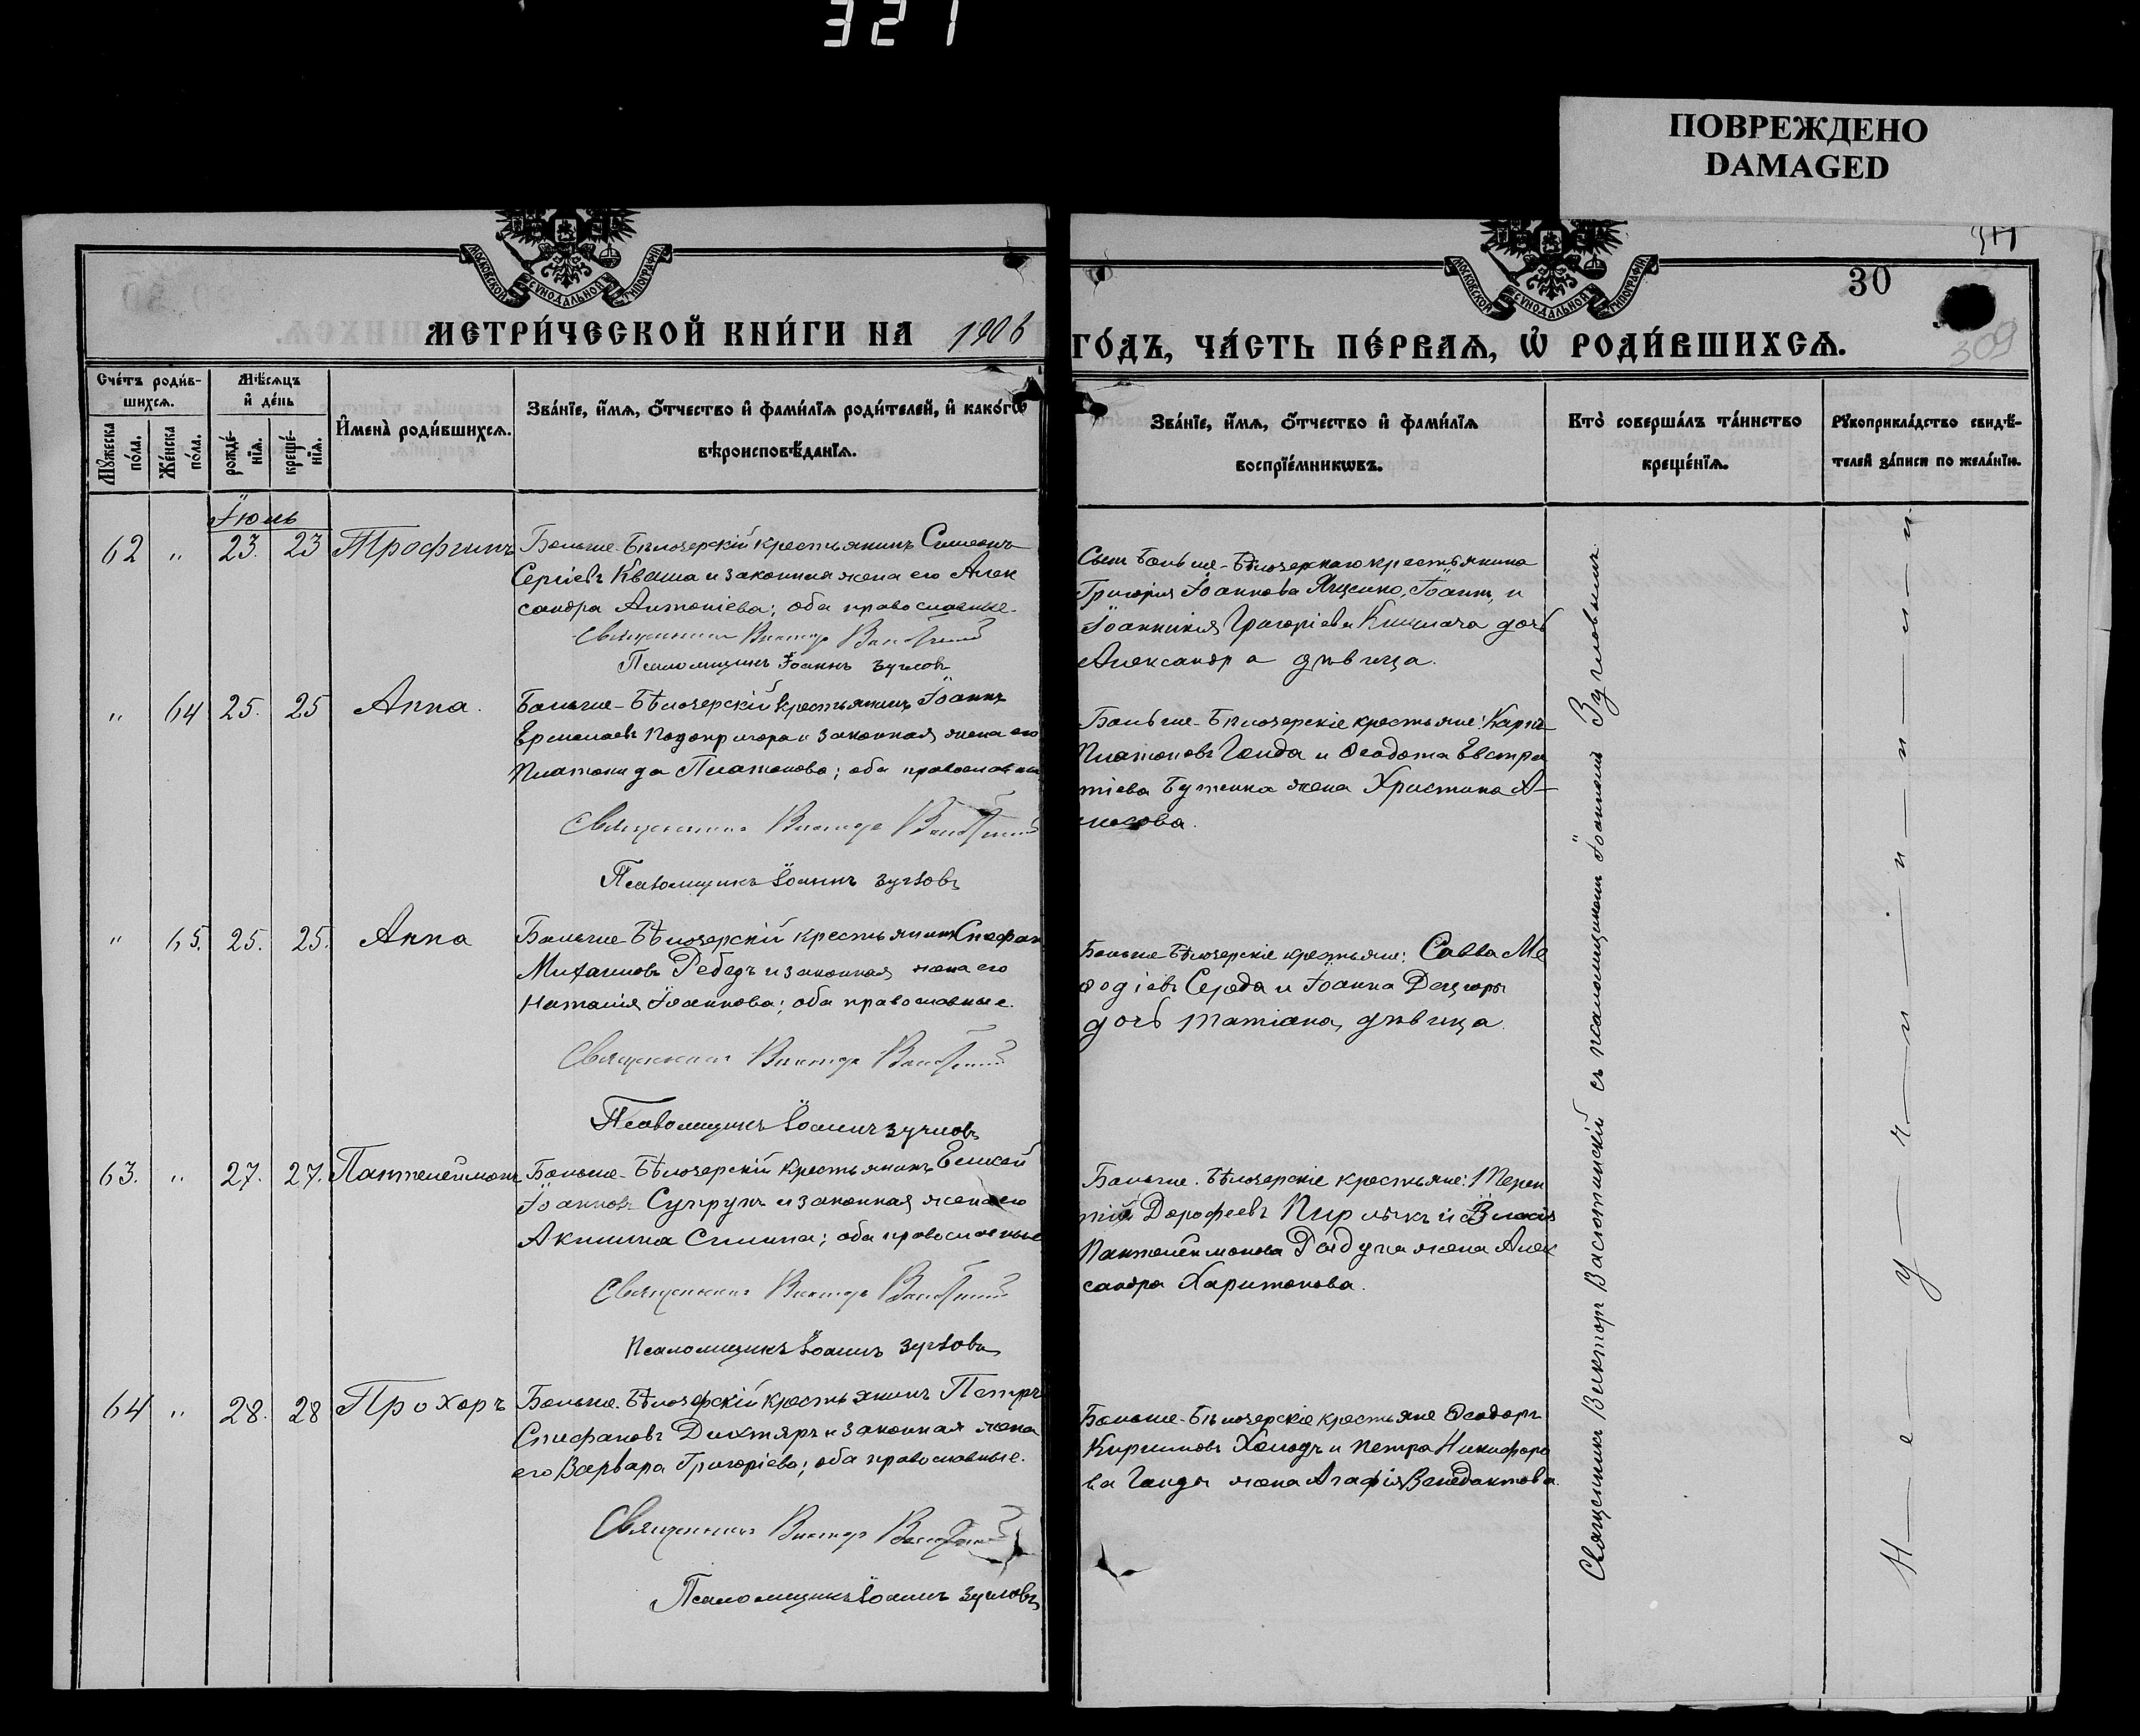 321
ПОВРЕЖДЕНО
DAMAGED
МОСКОВСКОЙ СУНОДАЛЬНОЙ ТИПОГРАФІИ
МОСКОВСКОЙ СУНОДАЛЬНОЙ ТИПОГРАФІИ
30
309
МЕТРИ́ЧЕСКОЙ КНИ́ГИ НА 1906
ГО́ДЪ, ЧА́СТЬ ПЕ́РВАѦ, Ѡ҆ РОДИ́ВШИХСѦ.
Сче́тъ роди́в-
шихсѧ.
Мꙋ́жеска
по́ла.
Же́нска
по́ла.
Мѣ́сѧцъ
и҆ де́нь
рожде́-
нїѧ.
креще́-
нїѧ.
И҆мена̀ роди́вшихсѧ.
Зва́нїе, и҆́мѧ, ѻ҆́тчество и҆ фами́лїѧ роди́телей, и҆ како́гѡ
вѣроисповѣ́данїѧ.
Зва́нїе, и҆́мѧ, ѻ҆́тчество и҆ фами́лїѧ
воспрїе́мникѡвъ.
Кто̀ соверша́лъ та́инство
креще́нїѧ.
Рꙋкоприкла́дство свидѣ́-
телей за́писи по жела́нїю.
Іюль
62 " 23. 23 Трофимъ
Больше-Бѣлозерскій крестьянинъ Симеонъ
Сергіевъ Кваша и законная жена его Алек
сандра Антоніева; оба православные.
Священникъ Викторъ
Псаломщикъ Іоаннъ Зучковъ
Сынъ Больше-Бѣлозерскаго крестьянина
Григорія Іоаннова Яценко, Іоаннъ, и
Іоанникія Григоріева дочь
Александра дѣвица.
" 64 25. 25 Анна.
Больше-Бѣлозерскій крестьянинъ Іоаннъ
Ермолаевъ Подопригора и законная жена его
Платонида Платонова; оба православные
Священникъ Викторъ
Псаломщикъ Іоаннъ Зучковъ
Больше-Бѣлозерскіе крестьяне: Карпъ
Платоновъ Гонда и Ѳеодота Евстра
тіева Бутенка жена Христина
" 65. 25. 25. Анна
Больше-Бѣлозерскій крестьянинъ Стефанъ
Михаиловъ Ребедъ и законная жена его
Наталія Іоаннова; оба православные.
Священникъ Викторъ
Псаломщикъ Іоаннъ Зучковъ
Больше-Бѣлозерскіе крестьяне: Савва Ме
ѳодіевъ Середа и Іоанна
дочь Татіана, дѣвица.
63. " 27. 27. Пантелеймонъ
Больше-Бѣлозерскій крестьянинъ Елисей
Іоанновъ Супрунъ и законная жена его
Акилина Силина; оба православные
Священникъ Викторъ
Псаломщикъ Іоаннъ Зучковъ
Больше-Бѣлозерскіе крестьяне: Терен
тій Дороѳеевъ и Власія
Пантелеимонова жена Алек
сандра Харитонова.
64 " 28. 28 Прохоръ
Больше-Бѣлозерскій крестьянинъ Петръ
Стефановъ Дихтяръ и законная жена
его Варвара Григоріева; оба православные.
Священникъ Викторъ
Псаломщикъ Іоаннъ Зучковъ
Больше-Бѣлозерскіе крестьяне Ѳеодоръ
Кирилловъ Холодъ и Петра Никифоро
ва Гонды жена Агафія Венедиктова.
Священникъ Викторъ съ псаломщикомъ Іоанномъ Зучковымъ.